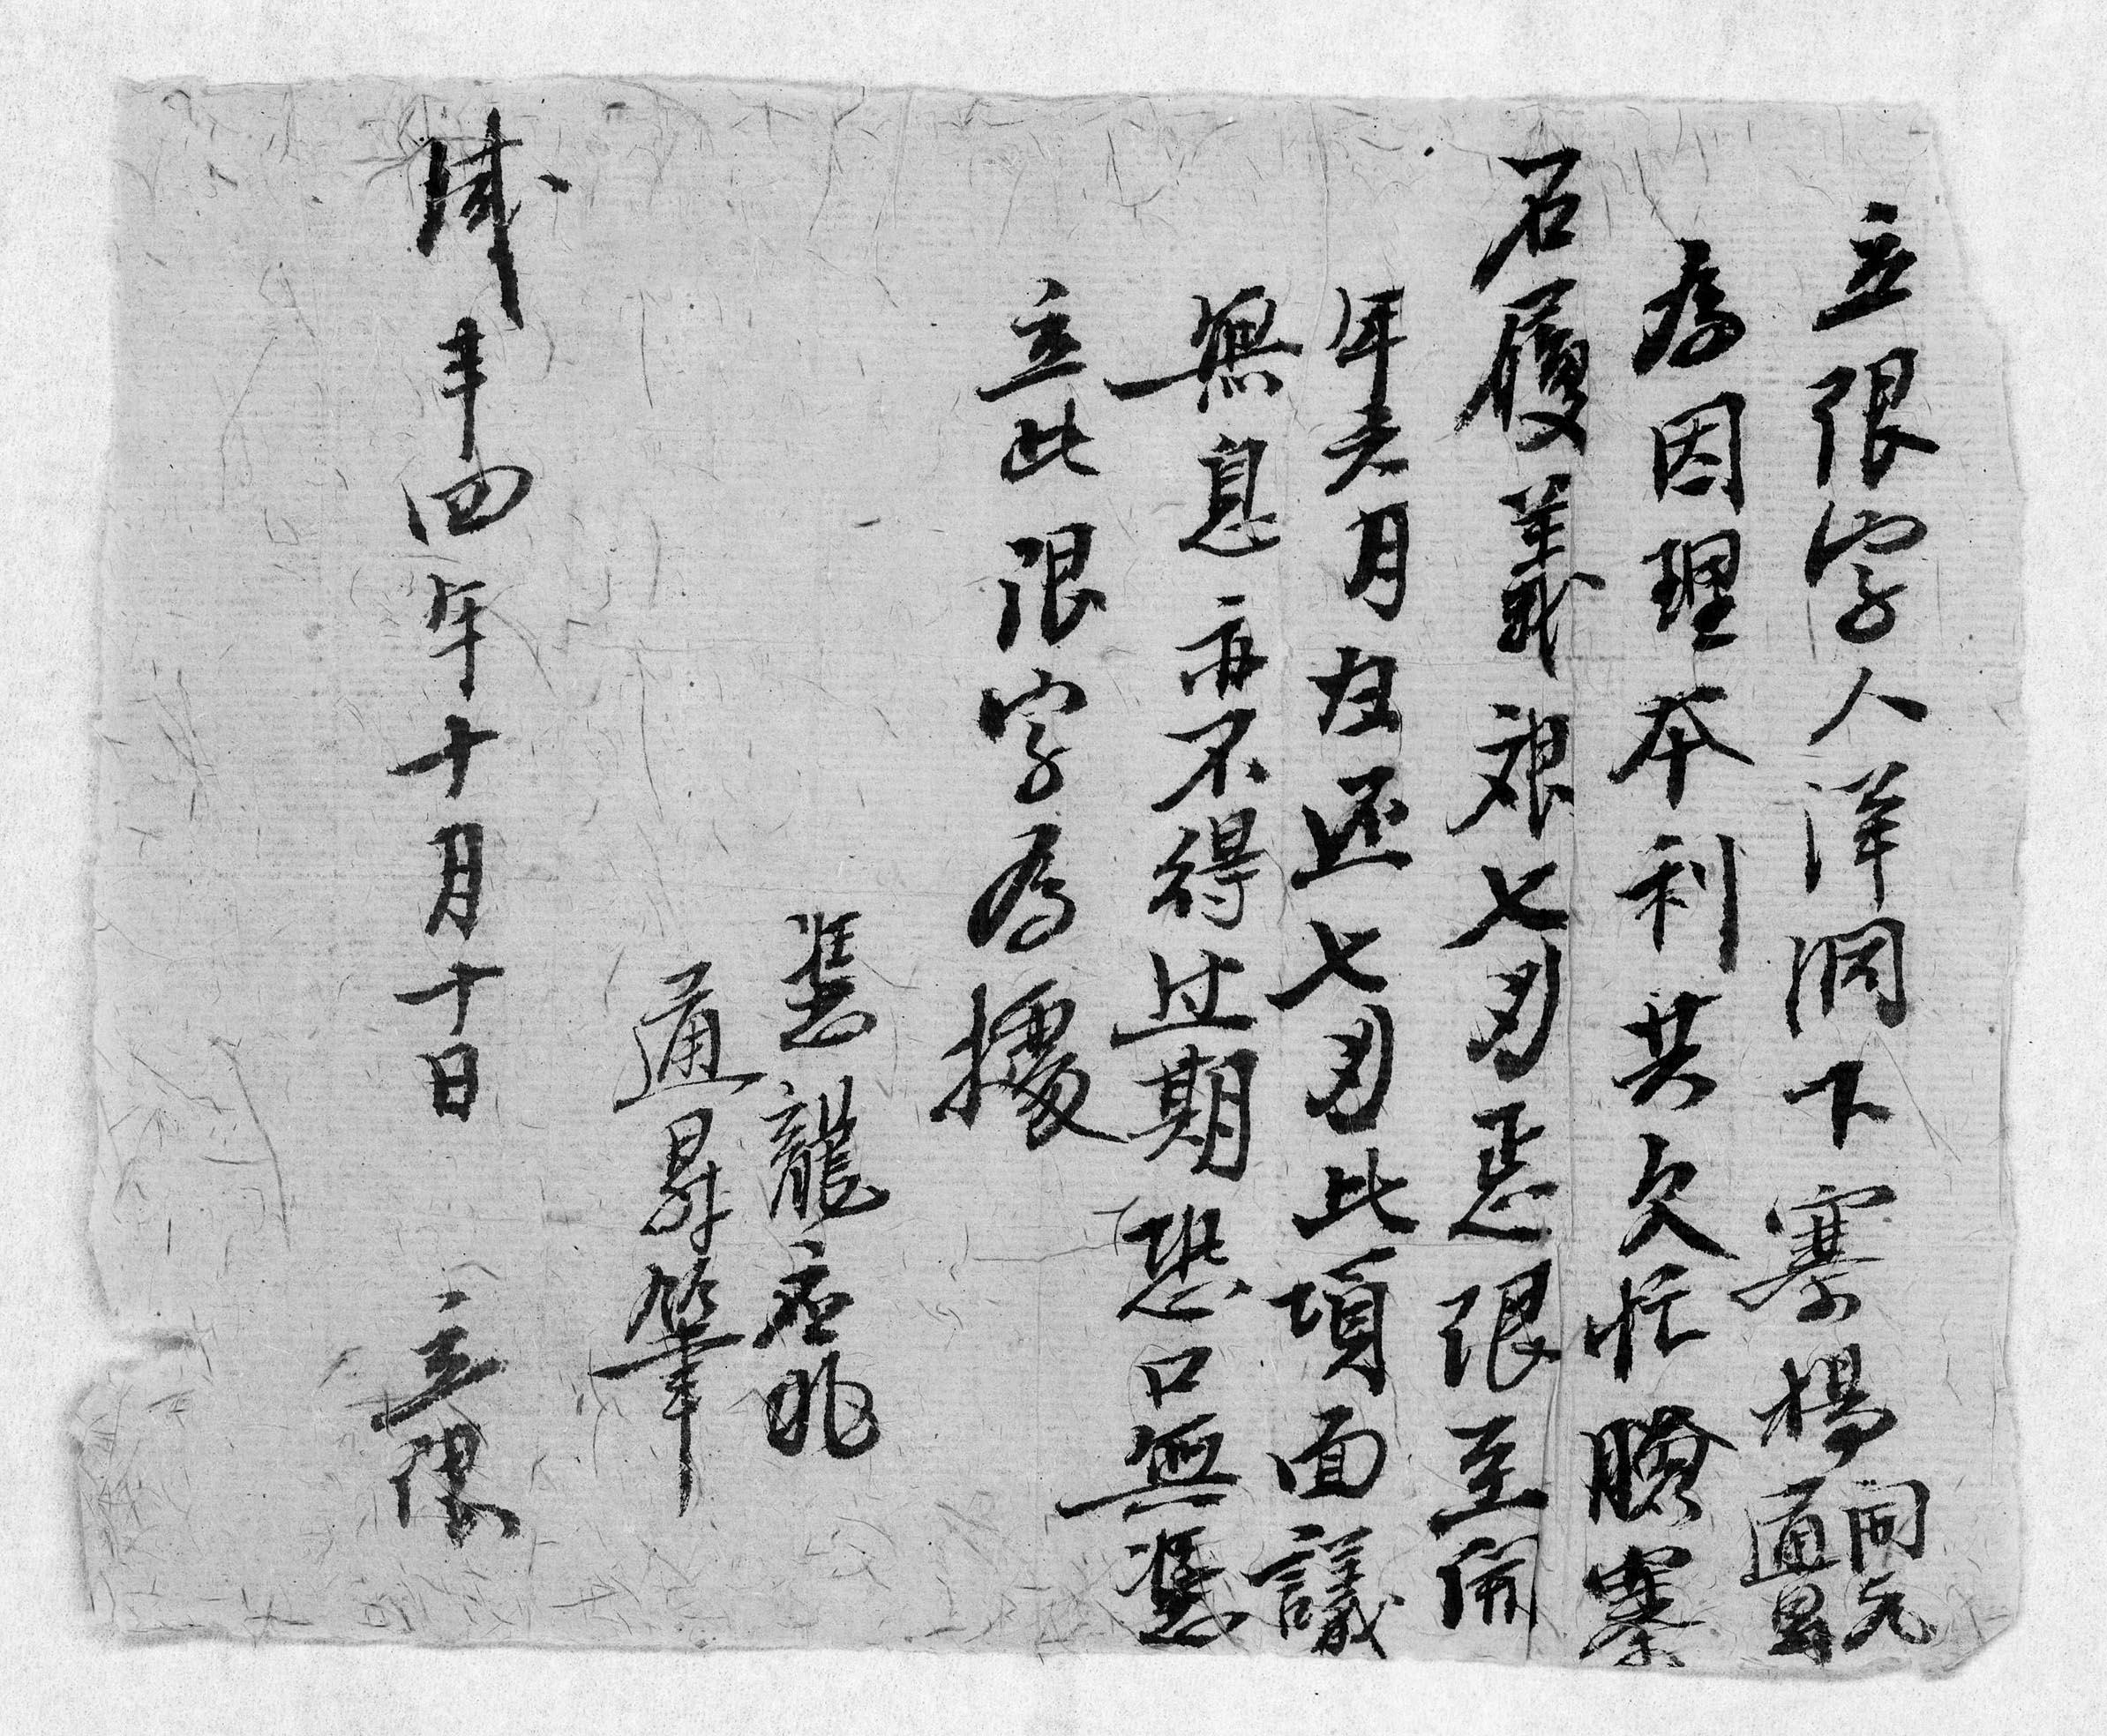 立限字人洋洞下寨楊同元通昇
為因理本利共欠忙臕寨
石履義艮七另悪限至開
年弍月在还七另此項面議
無息亦不得过期恐口無憑
立此限字為據
憑龍应兆
通昇筆
咸丰四年十月十日 立限